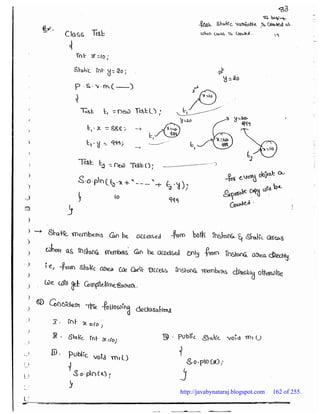 83
Ex:
class Test
{
int x=10;
static int y=20;
P. S. V. m(——)
{
Test t1 = new Test();
t1.x = 888;
t1.y = 999;
Test t2 = new Test();
S.o.pln(t2.x + "---" + t2.y);
10 999
}
}
y=20
x=10
t1
t2
for every object a
separate copy will be
created.
→ Static members can be accessed from both instance & static areas
where as instance members can be accessed only from instance area directly
i.e, from static area we can't access instance members directly otherwise
we will get CompiletimeError.
Consider the following declarations
I. int x=10;
II. static int x=10;
III. public void m1()
{
S.o.pln(x);
}
IV. public static void m1()
{
S.o.pln(x);
}
http://javabynataraj.blogspot.com 162 of 255.